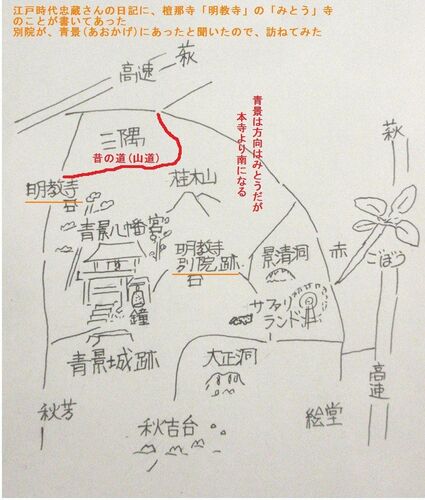 江戸時代忠蔵さんの日記に、檀那寺「明教寺」の「みとう」寺
のことが書いてあった
別院が、青景(あおかげ)にあったと聞いたので、訪ねてみた
萩
高速
三隅
昔の道(山道)
青景は方向はみとうだが
本寺より南になる
萩
明教寺
桂木山
青景八幡宮
明教寺
別院跡
景清洞
赤
ごぼう
サファリ
ランド
鐘
青景城跡
大正洞
高速
秋芳
秋吉台
絵堂